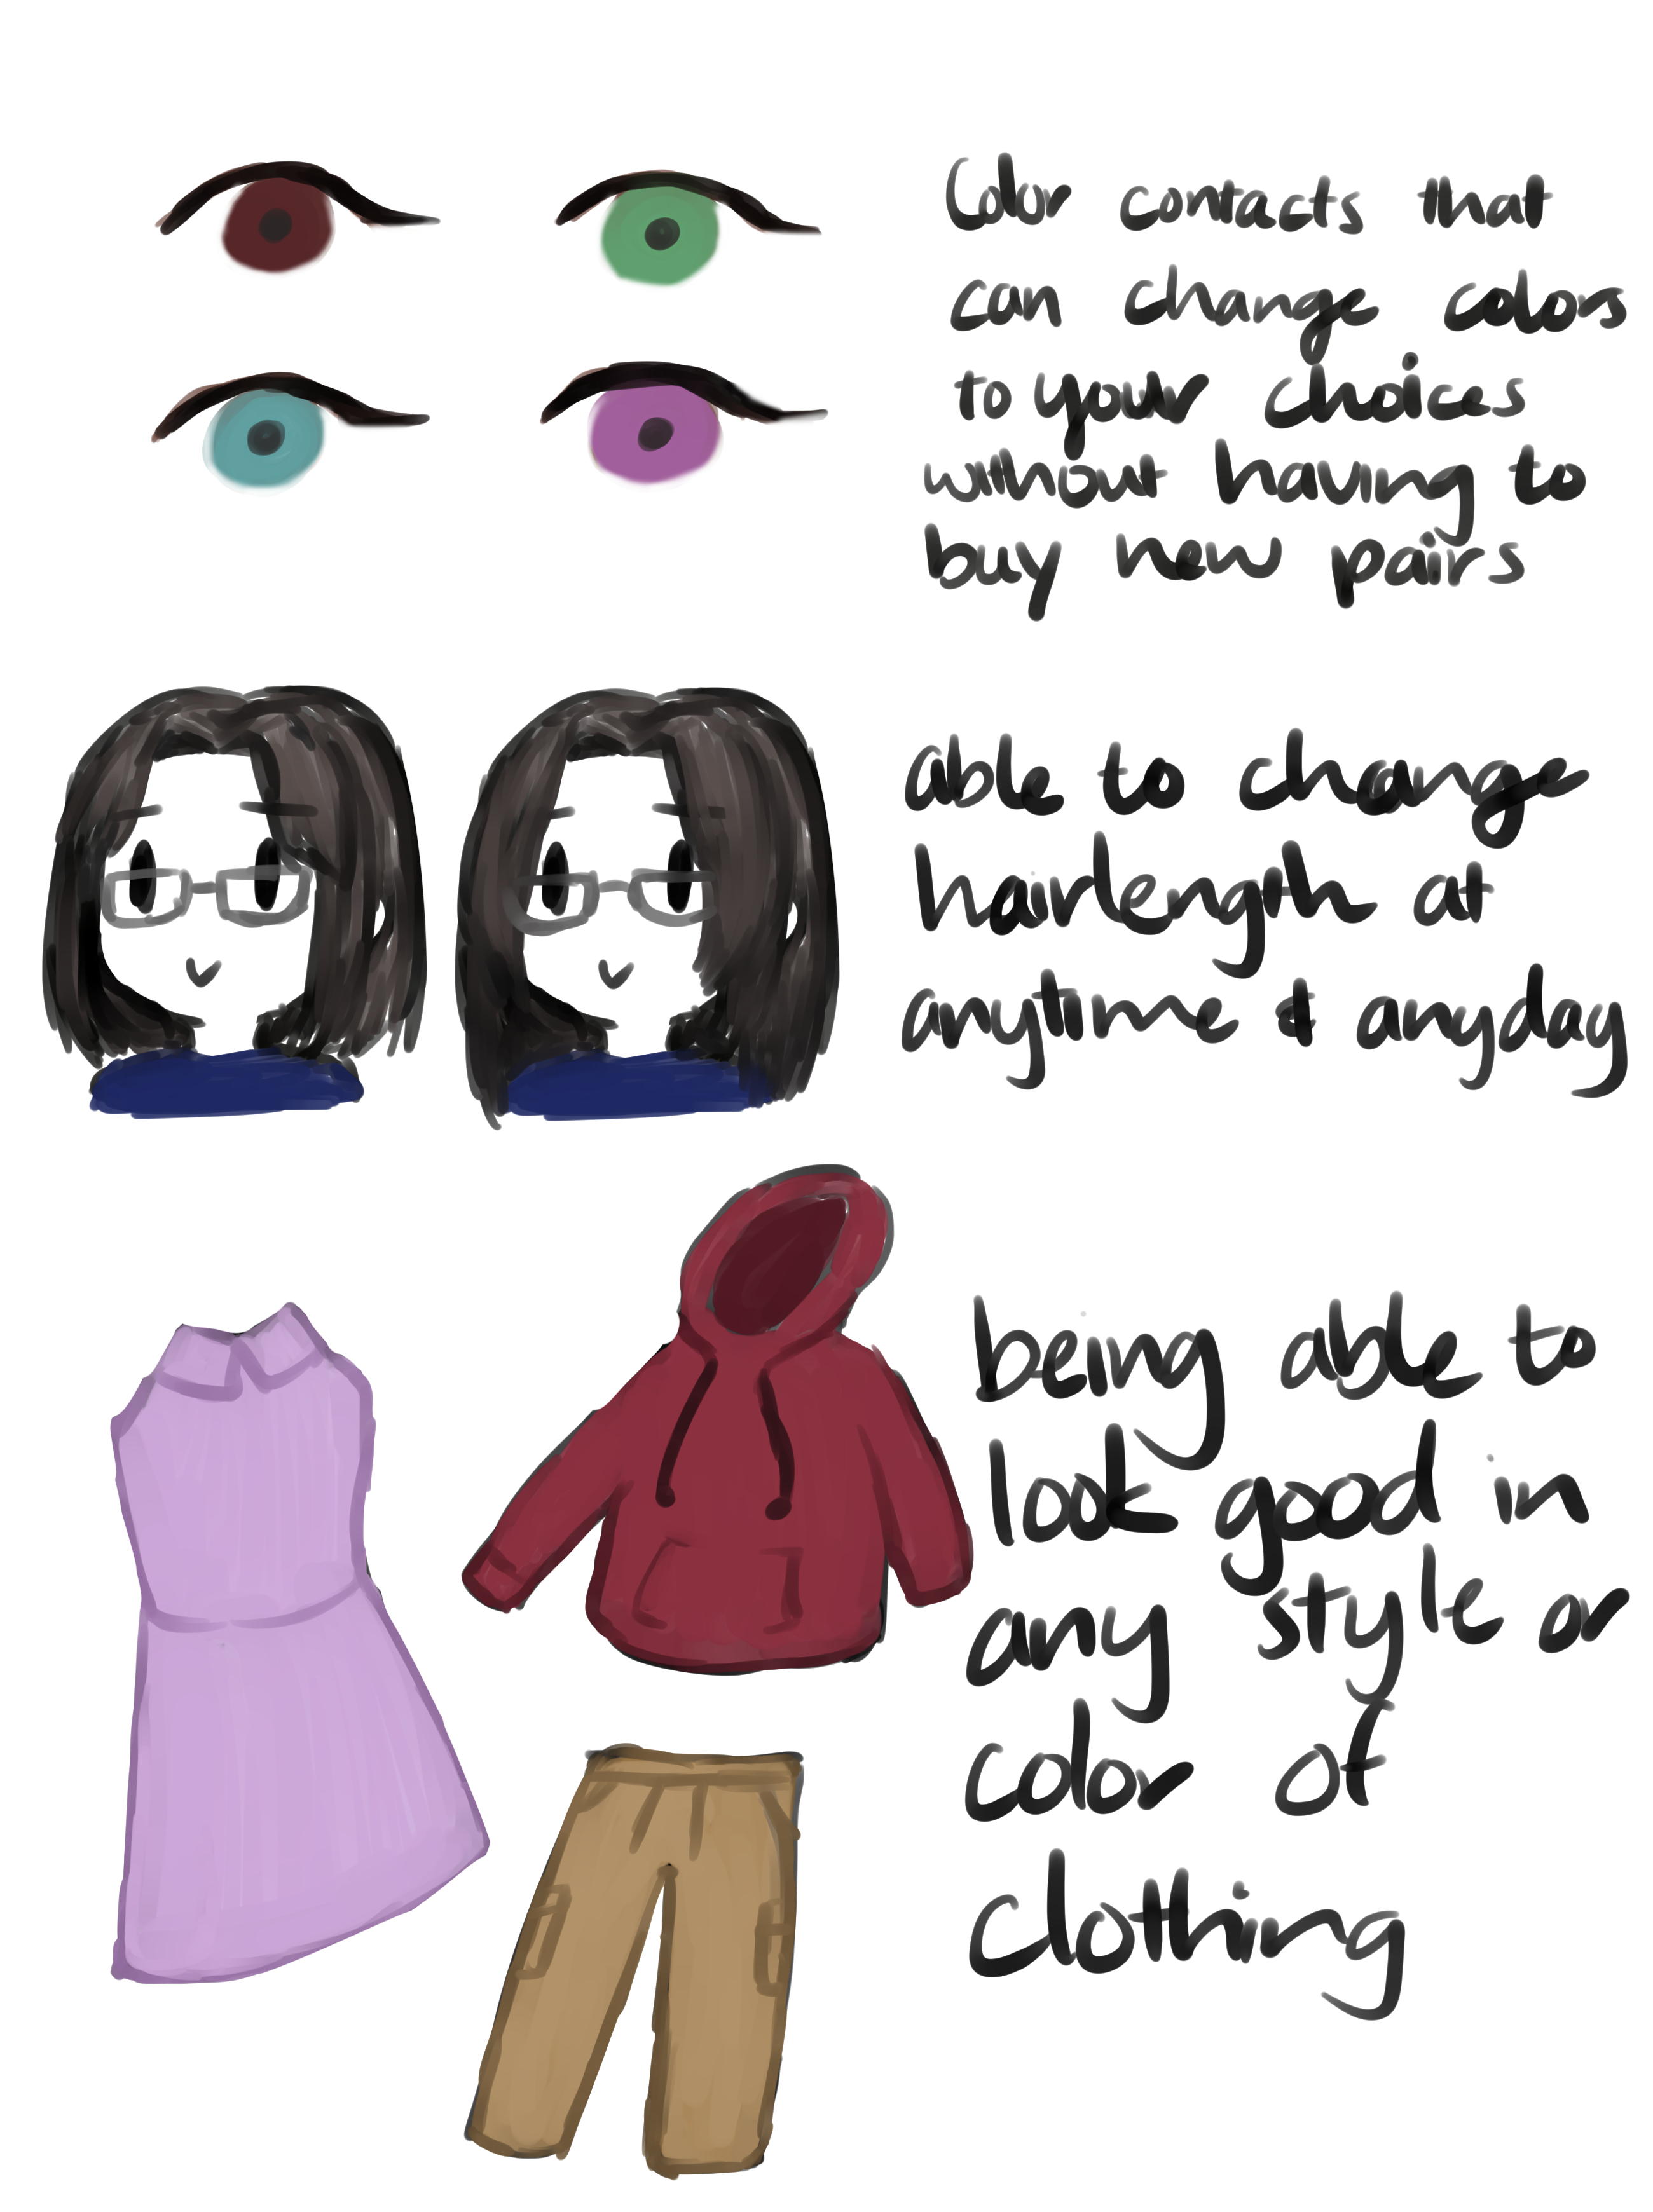 Color contacts that
can change colors
to your choices
without having to
buy new pairs
able to change
hairlength at
anytime & anyday
being able to
look good in
any style or
color of
clothing